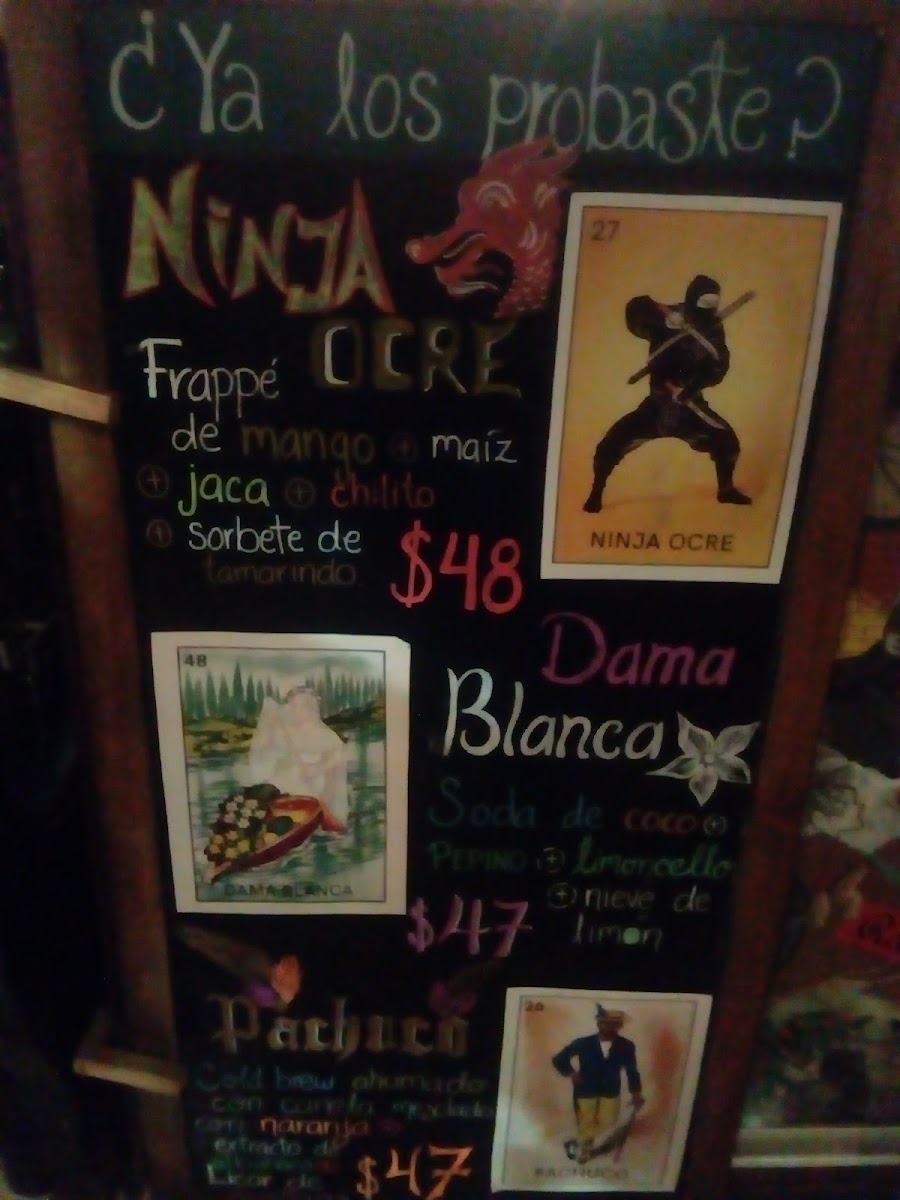 ¿Ya los probaste?
NiNJA
OCRE
Frappé
de mango + maíz
+ jaca + chilito
+ sorbete de
tamarindo
$48
27
NINJA OCRE
Dama
Blanca
Soda de coco +
PEPINO + limoncello
+ nieve de
limón
$47
48
DAMA BLANCA
Pachuco
Cold brew ahumado
con canela mezclado
con naranja +
extracto de
Licor de
$47
PACHUCO